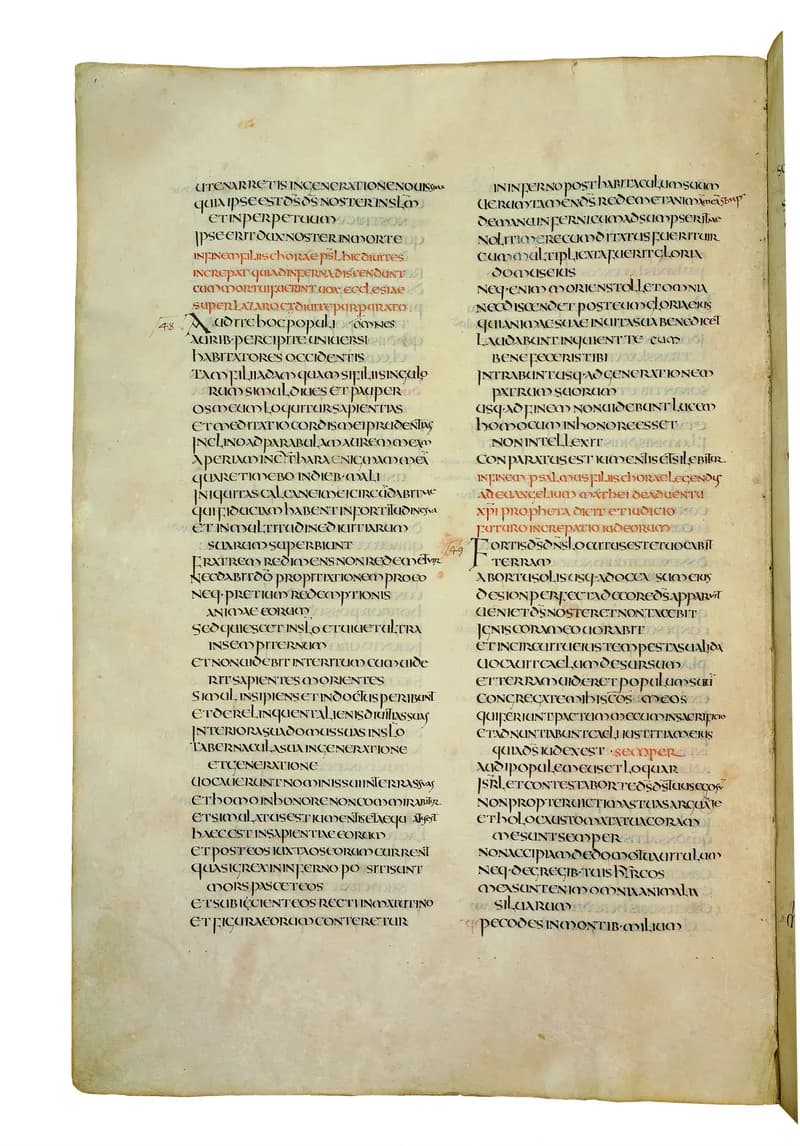 UTENARRETIS INGENERATIONENOUIS
QUIA IPSE EST DS DS NOSTER INSLM
ETINPERPETUUM
IPSE ERIT DUX NOSTER IN MORTE
INFINEM FILIIS CHORAE PSL HIC DIUITES
INCREPAT QUIA DINFERNA DISCENDUNT
CUM MORTUI FUERINT UOX ECCLESIAE
SUPER LAZARO ET DIUITE PURPURATO
48
AUDITE HOC POPULI OMNES
AURIB· PERCIPITE UNIUERSI
HABITATORES OCCIDENTIS
TAM FILII ADAM QUAM SI FILII SINGULO
RUM SIMUL DIUES ET PAUPER
OS MEUM LOQUITUR SAPIENTIAS
ET MEDITATIO CORDIS MEI PRUDENTIAS
INCLINO AD PARABULAM AUREM MEAM
APERIAM IN CITHARA ENIGMAM MEA
QUARE TIMEBO IN DIEB· MALI
INIQUITAS CALCANEI MEI CIRCUDABIT ME
QUI FIDUCIAM HABENT IN FORTITUDINE SUA
ET IN MULTITUDINE DIUITIARUM
SUARUM SUPERBIUNT
FRATREM REDIMENS NON REDEMETUIR
NEC DABIT DO PROPITIATIONEM PRO EO
NEQ· PRETIUM REDEMPTIONIS
ANIMAE EORUM
SED QUIESCET IN SLO ET UIUET ULTRA
IN SEMPITERNUM
ET NON UIDEBIT INTERITUM CUM UIDE
RIT SAPIENTES MORIENTES
SIMUL INSIPIENS ET INDOCTUS PERIBUNT
ET DERELINQUENT ALIENIS DIUITIAS SUAS
INTERIORA SUA DOMUS SUAS IN SLO
TABERNACULA SUA IN GENERATIONE
ET GENERATIONE
UOCAUERUNT NOMINIS SUI IN TERRAS SUAS
ET HOMO IN HONORE NON COMMIRABITUR
ET SIMULATUS EST IUMENTIS ET AEQU
HAEC EST INSAPIENTIAE EORUM
ET POST EOS IUXTA OS EORUM CURRENT
QUASI GREX IN INFERNO PO SITI SUNT
MORS PASCET EOS
ET SUBICIENT EOS RECTI IN MATUTINO
ET FIGURA EORUM CONTERETUR
IN INFERNO POST HABITACULUM SUUM
UERUM TAMEN DS REDEMET ANIMA MEA
DE MANU INFERNI CUM ADSUMPSERIT ME
NOLI TIMERE CUM DITATUS FUERIT UIR
CUM MULTIPLEXTA FUERIT GLORIA
DOMUS EIUS
NEQ· ENIM MORIENS TOLLET OMNIA
NEC DISCENDET POST EUM GLORIA EIUS
QUI ANIMAE SUAE IN UITA SUA BENEDICET
LAUDABUNT INQUIENT TE CUM
BENEFECERIS TIBI
INTRABUNT USQ· AD GENERATIONEM
PATRUM SUORUM
USQ· AD FINEM NON UIDEBUNT LUCEM
HOMO CUM IN HONORE ESSET
NON INTELLEXIT
CONPARATUS EST IUMENTIS ET SILEBITUR
IN FINEM PSALMUS FILIIS CHORAE LEGENDUS
AD EUANGELIUM MATHEI DE ADUENTU
XPI PROPHETA DICIT ET IUDICIO
FUTURO INCREPATIO IUDEORUM
49
FORTIS DS DNS LOCUTUS EST ET UOCABIT
TERRAM
AB ORTU SOLIS USQ· AD OCCA SUM EIUS
DE SION PERFECTA DECORE DS APPARUIT
UENIET DS NOSTER ET NON TACEBIT
IGNIS CORAM EO UORABIT
ET IN CIRCUITU EIUS TEMPESTAS UALIDA
UOCAUIT CAELUM DESURSUM
ET TERRAM UIDERET POPULUM SUU
CONGREGATE MIHI SCOS MEOS
QUI FERIUNT PACTUM MECUM IN SACRIFICIO
ET ADNUNTIABUNT CAELI IUSTITIAM EIUS
QUIA DS IUDEX EST · SEMPER
AUDI POPULE MEUS ET LOQUAR
ISRL ET CONTESTABOR TE DS DS TUUS EGO SU
NON PROPTER UICTIMAS TUAS ARGUA TE
ET HOLOCAUSTOMATA TUA CORAM
ME SUNT SEMPER
NON ACCIPIAM DE DOMO TUA UITULUM
NEQ· DE GREGIB· TUIS HIRCOS
MEA SUNT ENIM OMNIA ANIMALIA
SILUARUM
PECODES IN MONTIB· MILIUM